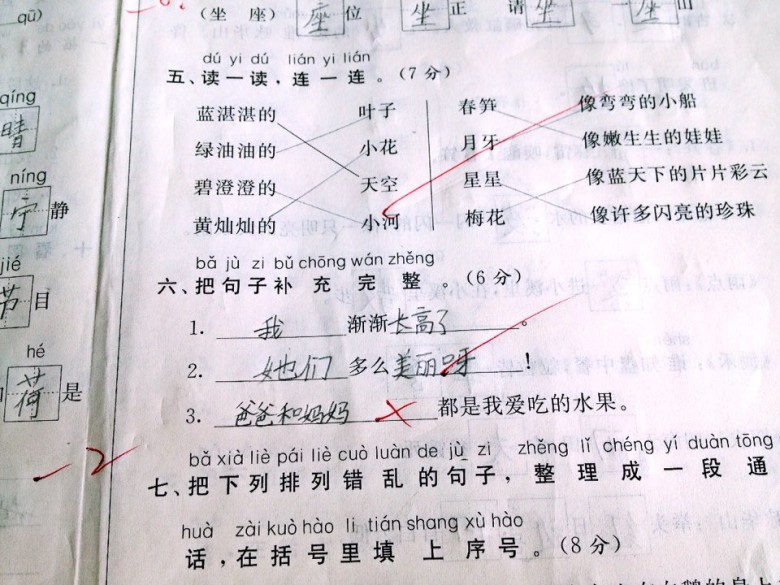 qū)
（坐 座） 座 位 坐 正 请 坐 座 山
dú yi dú lián yi lián
五、读一读，连一连。（7 分）
qíng
晴
蓝湛湛的 叶子 春笋 像弯弯的小船
绿油油的 小花 月牙 像嫩生生的娃娃
níng
宁 静
碧澄澄的 天空 星星 像蓝天下的片片彩云
黄灿灿的 小河 梅花 像许多闪亮的珍珠
jié
节 目
bǎ jù zi bǔ chōng wán zhěng
六、把句子补充完整。（6 分）
1. 我 渐渐长高了。
hé
荷 是
2. 她们 多么美丽呀！
3. 爸爸和妈妈 都是我爱吃的水果。
-2
bǎ xià liè pái liè cuò luàn de jù zi zhěng lǐ chéng yí duàn tōng
七、把下列排列错乱的句子，整理成一段通
huà zài kuò hào li tián shang xù hào
话，在括号里填上序号。（8 分）